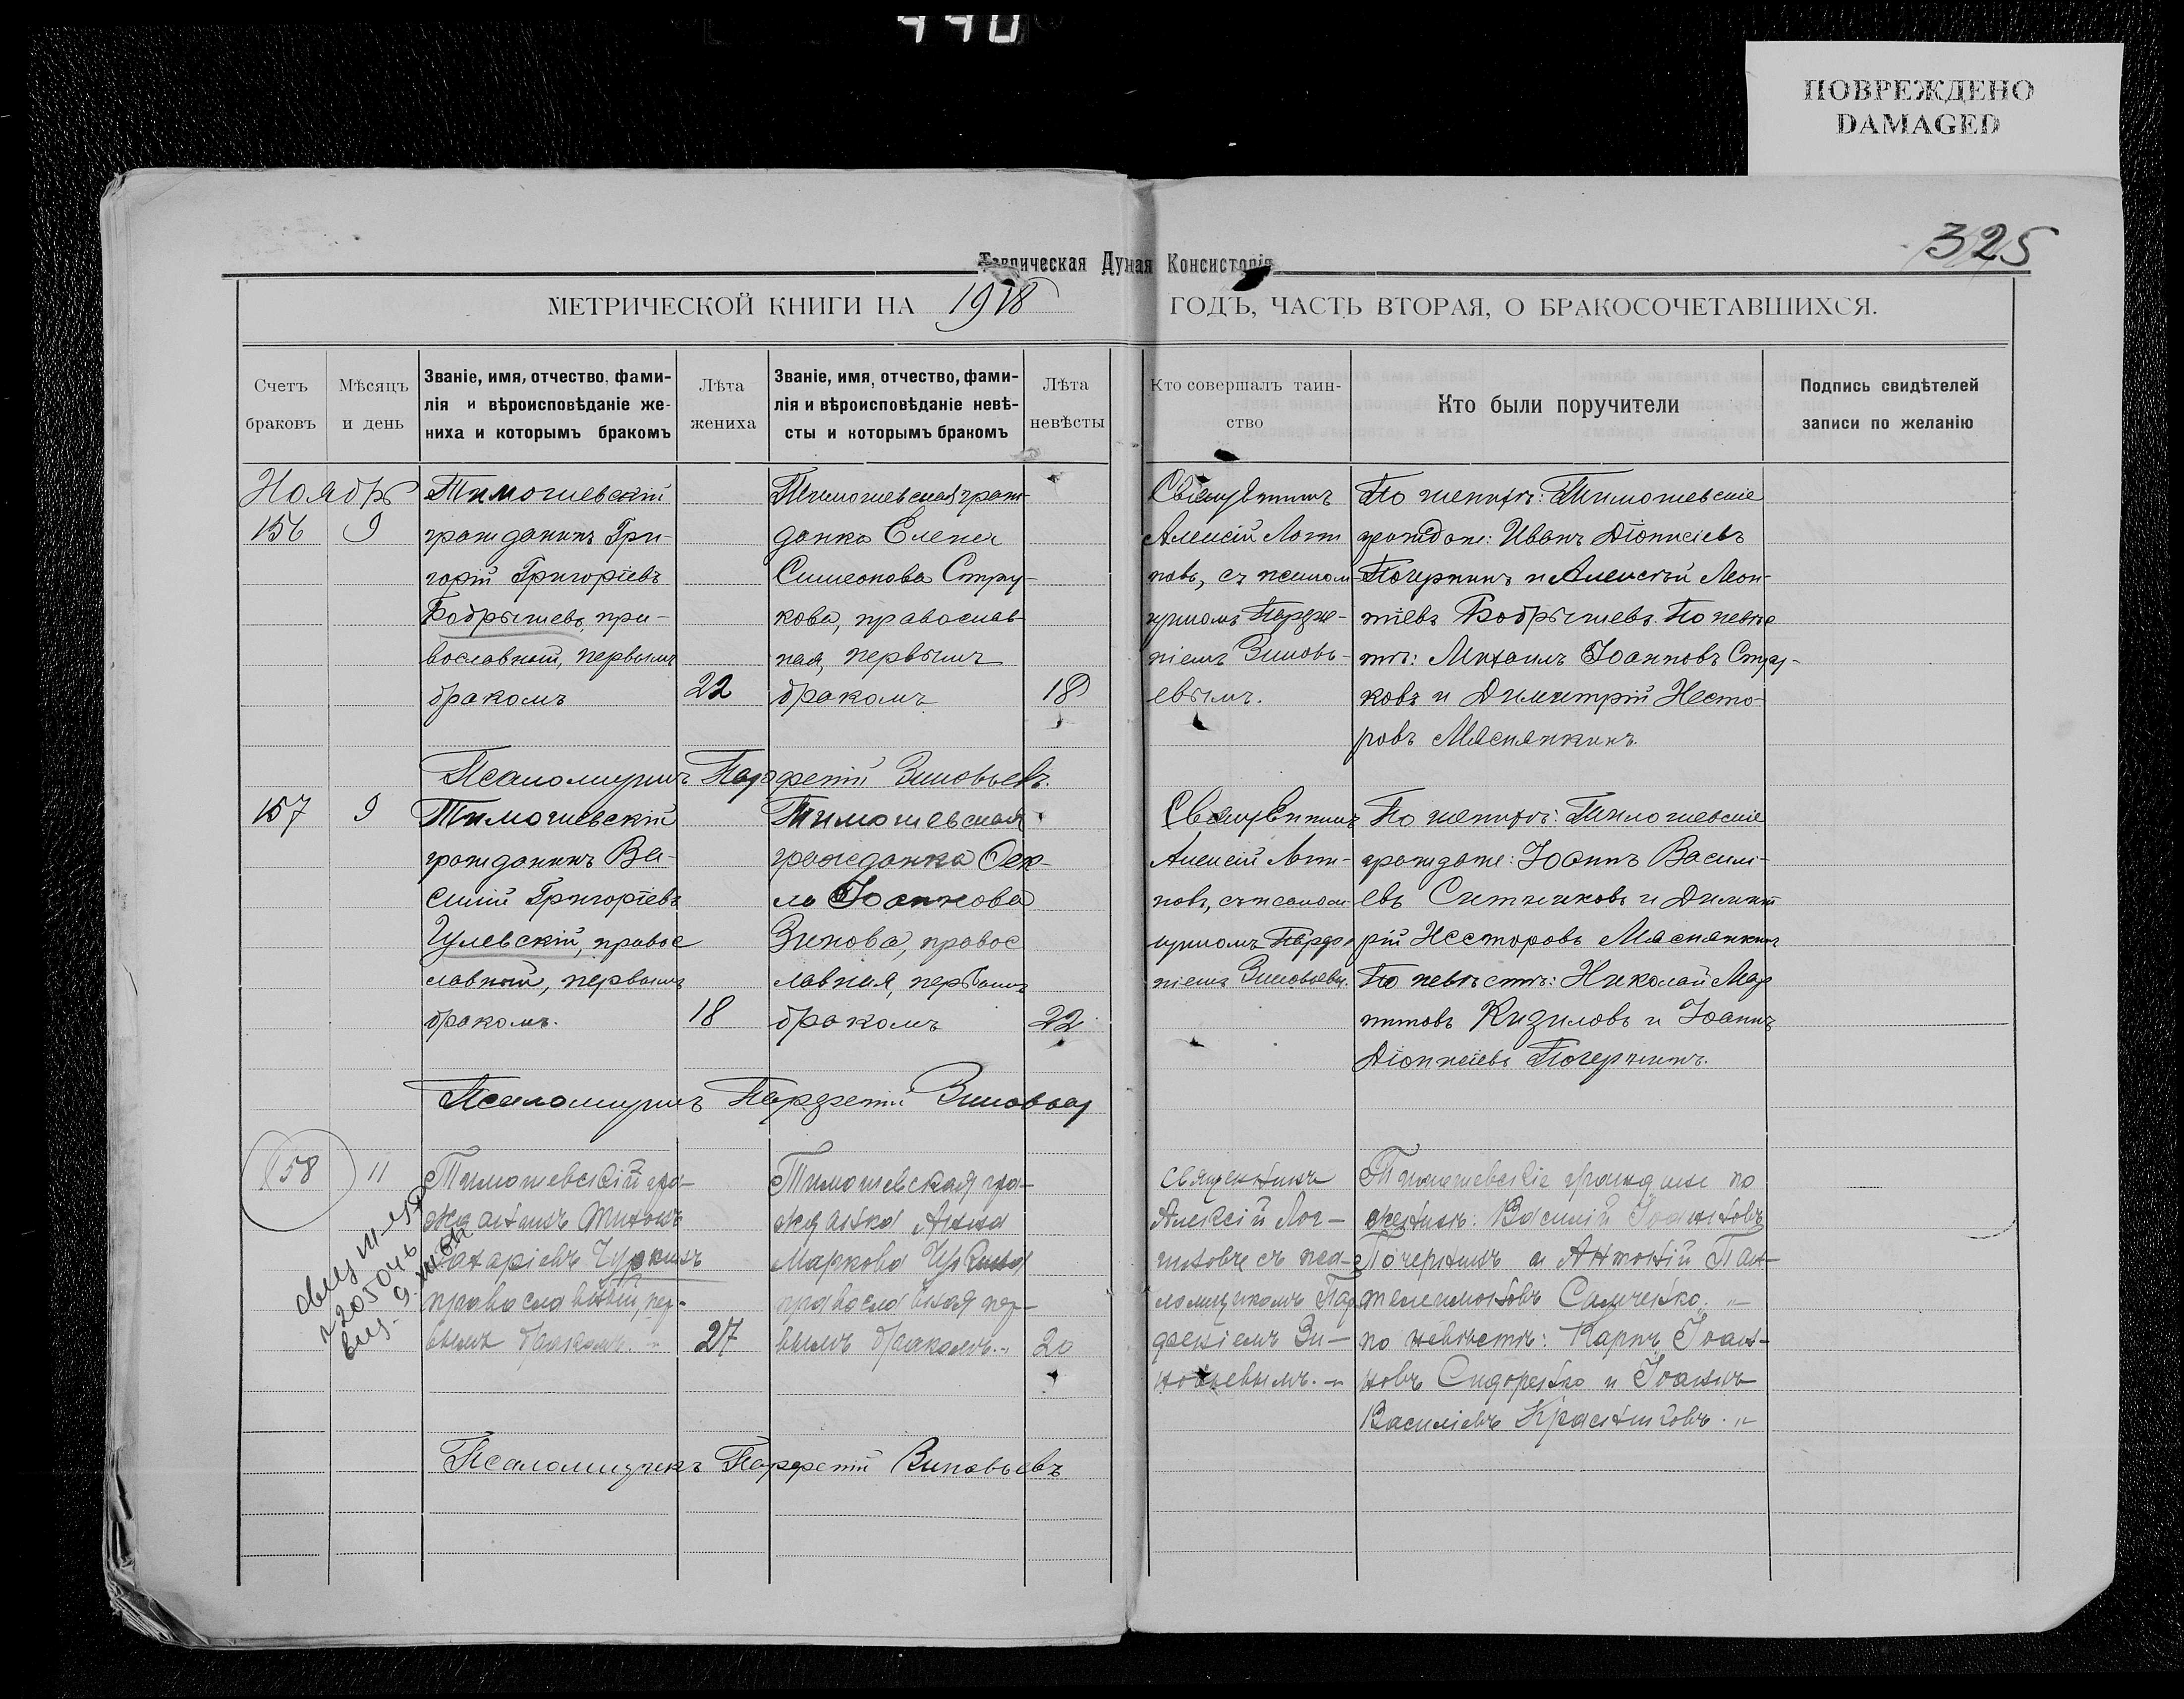 440
ПОВРЕЖДЕНО
DAMAGED
325
Таврическая Дуная Консисторія
МЕТРИЧЕСКОЙ КНИГИ НА 1918 ГОДЪ, ЧАСТЬ ВТОРАЯ, О БРАКОСОЧЕТАВШИХСЯ.
Счетъ
браковъ
Мѣсяцъ
и день
Званіе, имя, отчество, фами-
лія и вѣроисповѣданіе же-
ниха и которымъ бракомъ
Лѣта
жениха
Званіе, имя, отчество, фами-
лія и вѣроисповѣданіе невѣ-
сты и которымъ бракомъ
Лѣта
невѣсты
Кто совершалъ таин-
ство
Кто были поручители
Подпись свидѣтелей
записи по желанію
Ноябрь
156
9
Тимошевскій
гражданинъ Гри-
горій Григоріевъ
Бобрышевъ, пра-
вославный, первымъ
бракомъ
22
Тимошевская граж-
данка Елена
Симеонова Стру-
кова, православ-
ная, первымъ
бракомъ
18
Священникъ
Алексій Логи
новъ, съ псалом
щикомъ Парѳе-
ніемъ Зиновь-
евымъ.
По женихѣ: Тимошевскіе
граждане: Иванъ Діонисіевъ
Почеркинъ и Алексѣй Леон-
тіевъ Бобрышевъ. По невѣс
тѣ: Михаилъ Іоанновъ Стру-
ковъ и Димитрій Несто-
ровъ Мяснянкинъ.
Псаломщикъ Парфеній Зиновьевъ.
157
9
Тимошевскій
гражданинъ Ва-
силій Григоріевъ
Гулевскій, правос
лавный, первымъ
бракомъ.
18
Тимошевская
гражданка Оек-
ла Іоаннова
Зинова, правос
лавная, первымъ
бракомъ
22
Священникъ
Алексій Логи-
новъ, съ псалом-
щикомъ Парфе
ніемъ Зиновьевы.
По женихѣ: Тимошевскіе
граждане: Іоаннъ Василі-
евъ Ситниковъ и Димит
рій Несторовъ Мяснянкинъ
По невѣстѣ: Николай Мар
тиновъ Кизиловъ и Іоаннъ
Діонисіевъ Почеркинъ.
Псаломщикъ Парфеній Зиновьев
158
11
Тимошевскій гра-
жданинъ Титъ
Захаріевъ Чуркинъ
православный, пер-
вымъ бракомъ.
27
Тимошевская гра-
жданка Анна
Маркова
православная пер-
вымъ бракомъ.
20
священникъ
Алексій Лог-
иновъ съ пса-
ломщикомъ Пар
феніемъ Зи-
новьевымъ.
Тимошевскіе граждане по
женихѣ: Василій Іоанновъ
Почеркинъ и Антоній Пан-
телеимоновъ Самченко
по невѣстѣ: Карпъ Іоан-
новъ Сидоренко и Іоаннъ
Василіевъ Красниковъ.
Псаломщикъ Парфеній Зиновьевъ